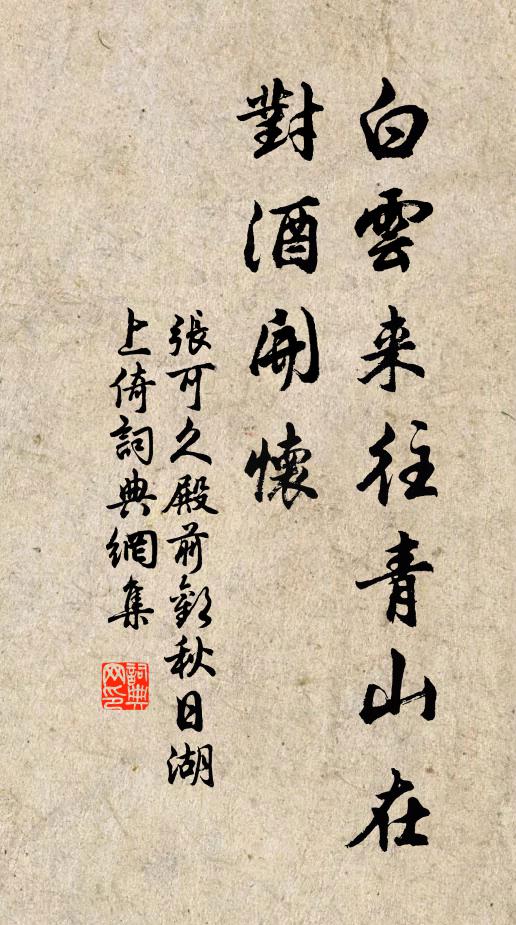 白雲来往青山在
對酒開懷
張可久殿前歡秋日湖
上倚詞典網集
詞典
网印